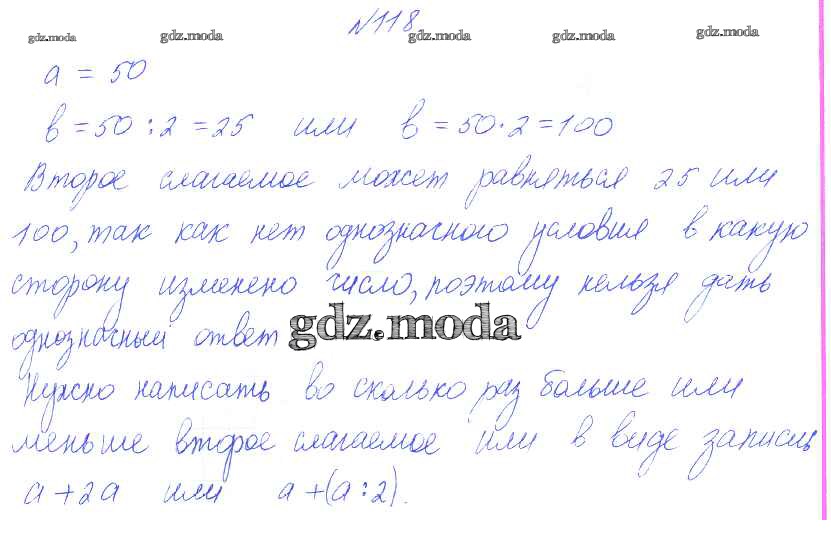 №118
gdz.moda gdz.moda gdz.moda gdz.moda gdz.moda
a = 50
в = 50 : 2 = 25 или в = 50 · 2 = 100
Второе слагаемое может равняться 25 или
100, так как нет однозначного условия в какую
сторону изменено число, поэтому нельзя дать
однозначный ответ
gdz.moda
Нужно написать во сколько раз больше или
меньше второе слагаемое или в виде записи
a + 2a или a + (a : 2).